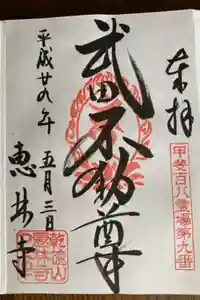 奉拝
甲斐百八霊場第九番
武田不動尊
平成廿九年 五月三日
恵林寺
乾徳山
恵林寺